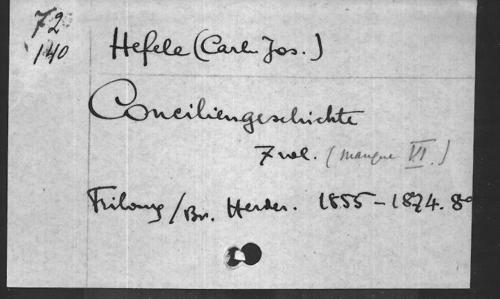 72
140
Hefele (Carl Jos.)
Conciliengeschichte
7 vol. (manque VI.)
Fribourg/Br. Herder. 1855-1874. 8°